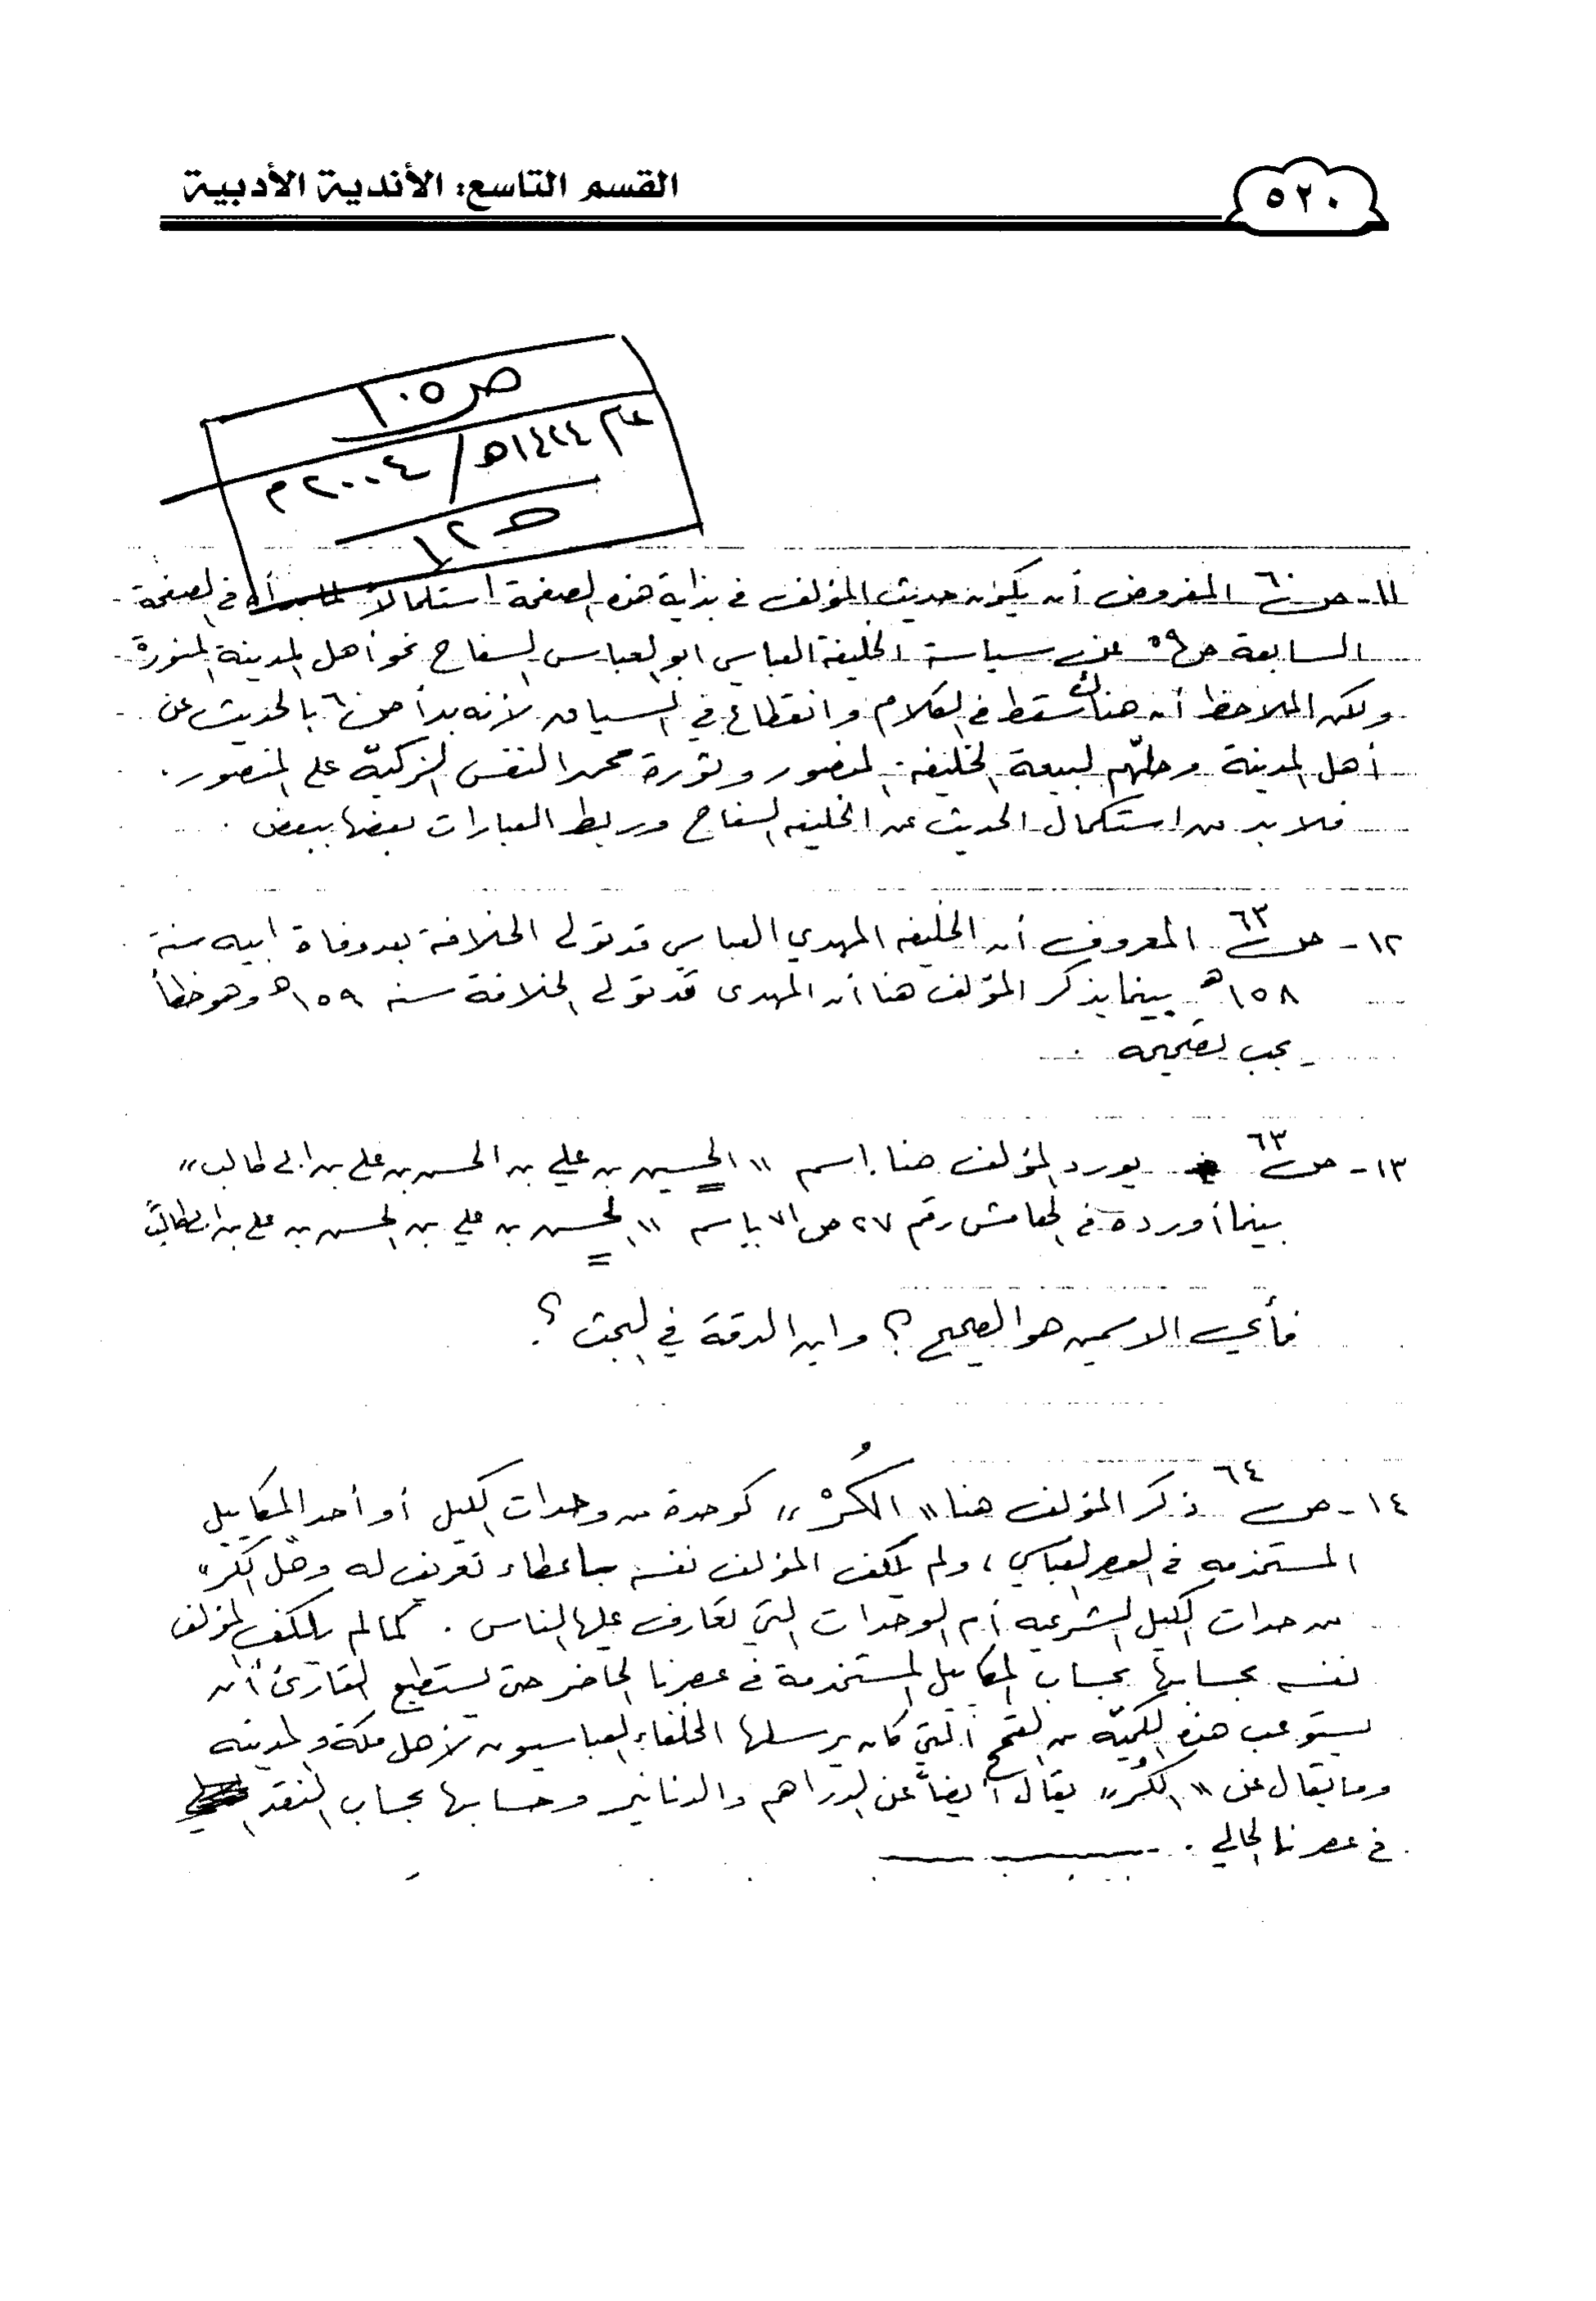 ٥٢٠
القسم التاسع: الأندية الأدبية
ص ١٠٥
عام ١٤٢٤هـ / ٢٠٠٤م
١١- ص ٦٠ المفروض أن يكون حديث المؤلف في بداية هذه الصفحة استكمالاً لما بدأه في الصفحة
السابعة ص ٥٩ عن سياسة الخليفة العباسي ابو العباس السفاح نحو أهل المدينة المنورة
ولكن الملاحظ أن هناك سقط في الكلام وانقطاع في السياق لأنه بدأ ص ٦٠ بالحديث عن
أهل المدينة وحلّهم لبيعة الخليفة المنصور وثورة محمد النفس الزكيّة على المنصور .
فلا بد من استكمال الحديث عن الخليفه السفاح وربط العبارات بعضها ببعض .
١٢- ص ٦٣ المعروف أن الخليفه المهدي العباسي قد تولى الخلافة بعد وفاة ابيه سنة
١٥٨هـ بينما يذكر المؤلف هنا أن المهدى قد تولى الخلافة سنه ١٥٩هـ وهو خطأ
يجب تصحيحه .
١٣- ص ٦٣ يورد المؤلف هنا اسم " الحسين بن علي بن الحسن بن علي بن ابى طالب "
بينما أورده في الهامش رقم ٢٧ ص ٧١ باسم " الحسن بن علي بن الحسن بن علي بن ابى طالب "
فأي الاسمين هو الصحيح ؟ واين الدقة في البحث ؟.
١٤- ص ٦٤ ذكر المؤلف هنا " الكُرْ " كوحدة من وحدات الكيل أو أحد المكاييل
المستخدمه في العصر العباسي ، ولم يكلف المؤلف نفسه باعطاء تعريف له وهل "الكر"
من حدات الكيل الشرعيه أم الوحدات التي تعارف عليها الناس . كما لم يكلف المؤلف
نفسه بحسابها بحساب المكاييل المستخدمة في عصرنا الحاضر حتى يستطيع القارئ أن
يستوعب هذه الكميّه من القمح التي كان يرسلها الخلفاء العباسيون لأهل مكة والمدينه
وما يقال عن " الكُر " يقال أيضاً عن الدراهم والدنانير وحسابها بحساب النقد
في عصرنا الحالي .